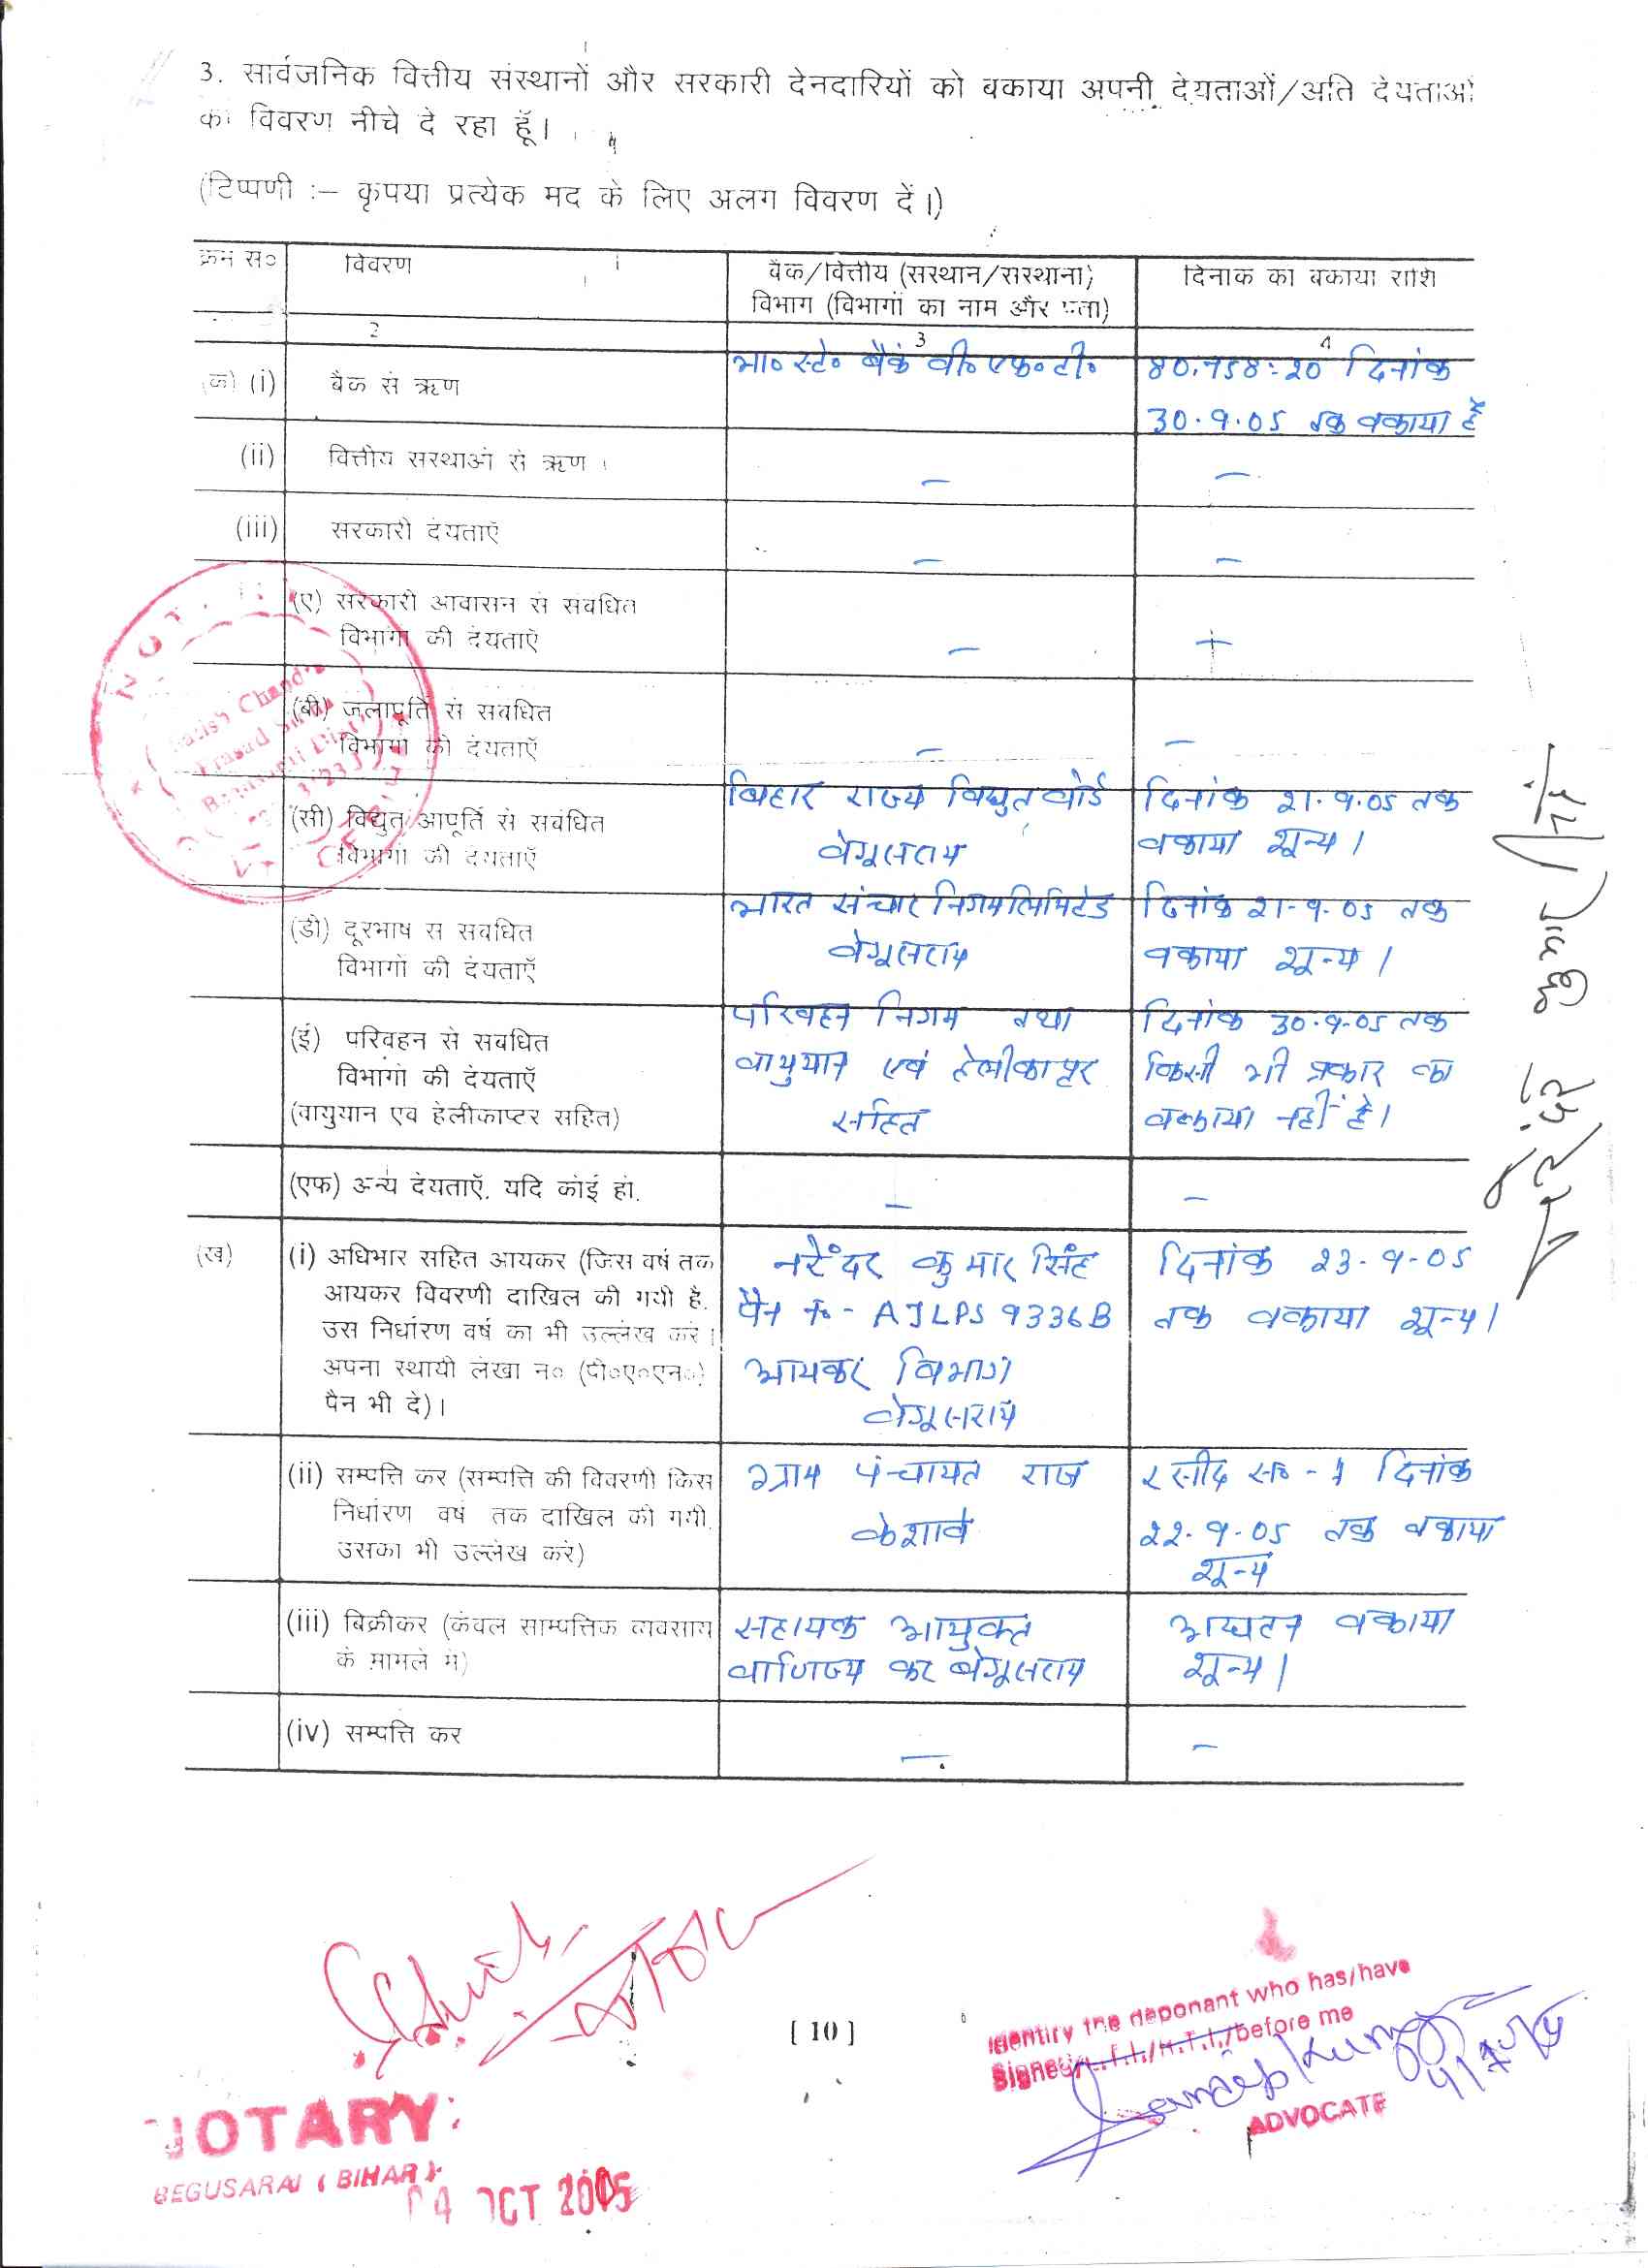 3. सार्वजनिक वित्तीय संस्थानों और सरकारी देनदारियों को बकाया अपनी देयताओं/अति देयताओं
का विवरण नीचे दे रहा हूँ।
(टिप्पणी :– कृपया प्रत्येक मद के लिए अलग विवरण दें।)
क्रम स० विवरण बैंक/वित्तीय (संस्थान/संस्थानों) दिनांक को बकाया राशि
विभाग (विभागों का नाम और पता)
2 3 4
(क) (i) बैंक से ऋण भा० स्टे० बैंक वी० एफ० टी० 80,758=20 दिनांक
30.9.05 तक वकाया है
(ii) वित्तीय संस्थाओं से ऋण – –
(iii) सरकारी देयताएँ – –
(ए) सरकारी आवासन से संबंधित
विभागों की देयताएँ – –
(बी) जलापूर्ति से संबंधित
विभागों की देयताएँ – –
(सी) विद्युत आपूर्ति से संबंधित बिहार राज्य विद्युत वोर्ड दिनांक 21.9.05 तक
विभागों की देयताएँ वेगूसराय वकाया शून्य।
(डी) दूरभाष से संबंधित भारत संचार निगम लिमिटेड दिनांक 21-9-05 तक
विभागों की देयताएँ वेगूसराय वकाया शून्य।
(ई) परिवहन से संबंधित परिवहन निगम तथा दिनांक 30.9.05 तक
विभागों की देयताएँ वायुयान एवं हेलीकाप्टर किसी भी प्रकार का
(वायुयान एवं हेलीकाप्टर सहित) सहित वकाया नहीं है।
(एफ) अन्य देयताएँ, यदि कोई हो. – –
(ख) (i) अधिभार सहित आयकर (जिस वर्ष तक नरेंदर कुमार सिंह दिनांक 23-9-05
आयकर विवरणी दाखिल की गयी है, पैन नं०- AJLPS 9336B तक वकाया शून्य।
उस निर्धारण वर्ष का भी उल्लेख करें। आयकर विभाग
अपना स्थायी लेखा न० (पी०ए०एन०) वेगूसराय
पैन भी दें)।
(ii) सम्पत्ति कर (सम्पत्ति की विवरणी किस ग्राम पंचायत राज रसीद सं० - 1 दिनांक
निर्धारण वर्ष तक दाखिल की गयी, केशावे 22-9-05 तक वकाया
उसका भी उल्लेख करें) शून्य
(iii) बिक्रीकर (केवल साम्पत्तिक व्यवसाय सहायक आयुक्त अद्यतन वकाया
के मामले में) वाणिज्य कर वेगूसराय शून्य।
(iv) सम्पत्ति कर – –
[ 10 ]
Identify the deponant who has/have
Signed/L.T.I./H.T.I./before me
ADVOCATE
NOTARY
BEGUSARAI (BIHAR)
04 OCT 2005